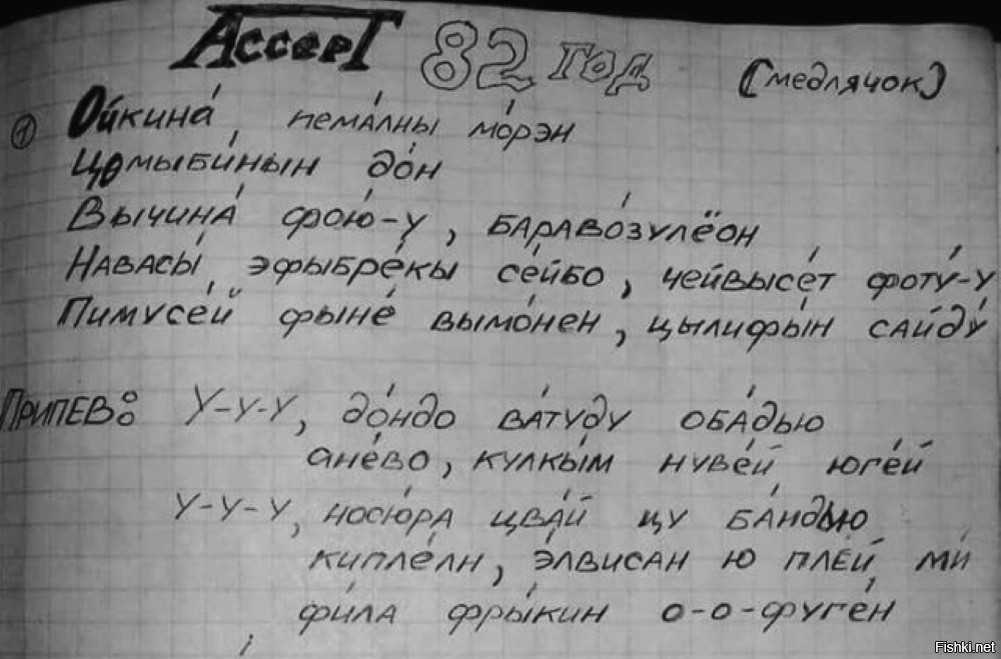 Accept 82 год (медлячок)
① Ойкина́, пема́лны мо́рэн
Цомыби́нын до́н
Вычина́ фою́-у, барово́зулёон
Навасы́ эфыбре́кы се́йбо, чейвысе́т фоту́-у
Пимусе́й фыне́ вымо́нен, цылифы́н сайду́
Припев: У-у-у, до́ндо ва́туду оба́дью
ане́во, кулкы́м нуве́й, юге́й
У-у-у, носю́ра цва́й цу ба́ндью
кипле́лн, э́лвисан ю плей ми́
фи́ла фры́кин о-о-фуге́н
Fishki.net